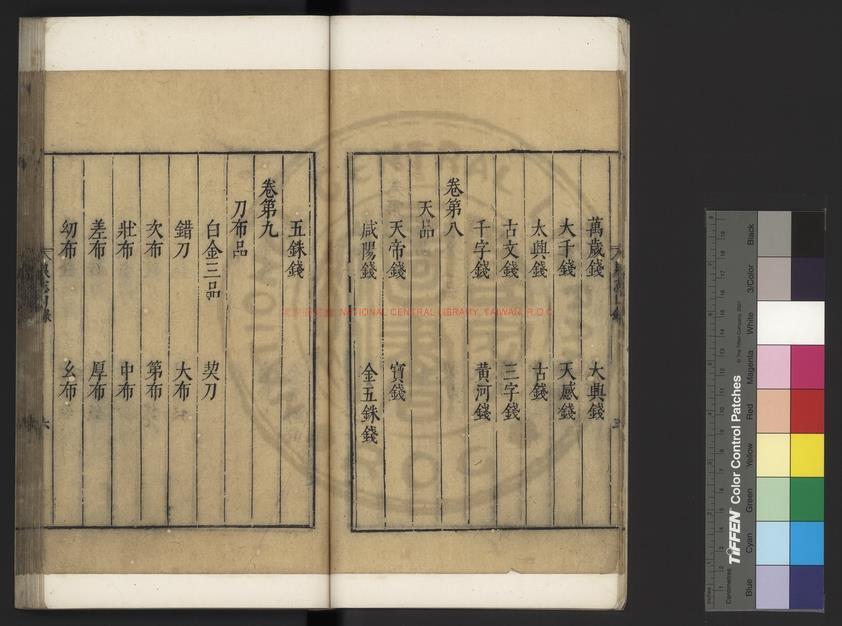 萬歲錢　大興錢
大千錢　天感錢
太興錢　古錢
古文錢　三字錢
千字錢　黃河錢
卷第八
天品
天帝錢　寶錢
咸陽錢　金五銖錢
五銖錢
卷第九
刀布品
白金三品　契刀
錯刀　大布
次布　第布
壯布　中布
差布　厚布
幼布　幺布
六
NATIONAL CENTRAL LIBRARY, TAIWAN, R.O.C
TIFFEN Color Control Patches
© The Tiffen Company, 2007
Centimetres
Blue
Cyan
Green
Yellow
Red
Magenta
White
3/Color
Black